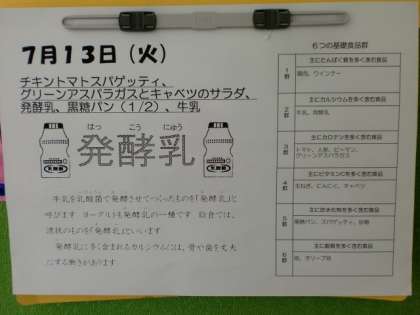 7月13日（火）
チキントマトスパゲッティ、
グリーンアスパラガスとキャベツのサラダ、
発酵乳、黒糖パン（1/2）、牛乳
はっ こう にゅう
発酵乳
牛乳を乳酸菌で発酵させてつくったものを「発酵乳」と
呼びます ヨーグルトも発酵乳の一種です 給食では、
液状のものを「発酵乳」といいます
発酵乳に多く含まれるカルシウムには、骨や歯を丈夫
にする働きがあります
6つの基礎食品群
1群
主にたんぱく質を多く含む食品
鶏肉、ウインナー
2群
主にカルシウムを多く含む食品
牛乳、発酵乳
3群
主にカロテンを多く含む食品
トマト、人参、ピーマン、
グリーンアスパラガス
4群
主にビタミンCを多く含む食品
玉ねぎ、にんにく、キャベツ
5群
主に炭水化物を多く含む食品
黒糖パン、スパゲッティ、砂糖
6群
主に脂質を多く含む食品
油、オリーブ油